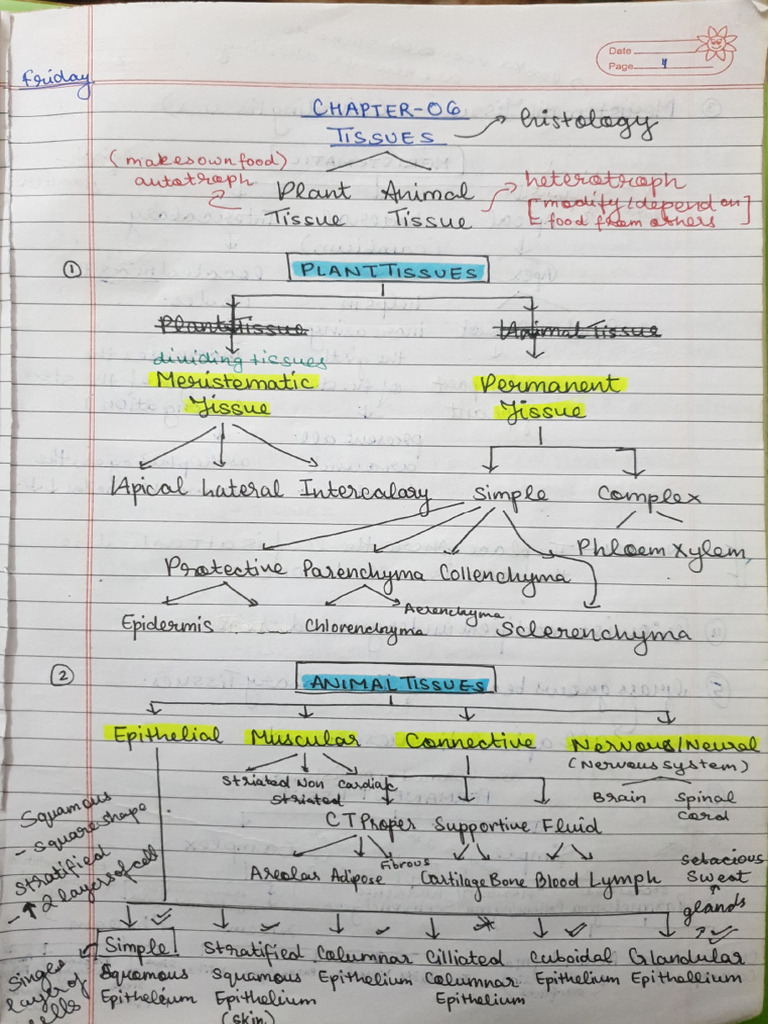 Date
Page 4
Friday
CHAPTER-06
TISSUES
histology
(makes own food)
autotroph
Plant Animal
Tissue Tissue
heterotroph
[modify/depend on]
food from others
① PLANT TISSUES
Plant Tissue Animal Tissue
dividing tissues
Meristematic Permanent
Tissue Tissue
Apical Lateral Intercalary Simple Complex
Phloem Xylem
Protective Parenchyma Collenchyma
Aerenchyma
Epidermis Chlorenchyma Sclerenchyma
② ANIMAL TISSUES
Epithelial Muscular Connective Nervous/Neural
(Nervous system)
Striated Non Cardiac
Striated
Brain Spinal
Cord
CT Proper Supportive Fluid
Fibrous
Areolar Adipose Cartilage Bone Blood Lymph
Sebacious
Sweat
glands
Squamous
- square shape
Stratified
- ↑ 2 layers of cell
Simple Stratified Columnar Cilliated Cuboidal Glandular
Squamous Squamous Epithelium Columnar Epithelium Epithellium
Epithelium Epithelium Epithelium
(skin)
layer of
cells